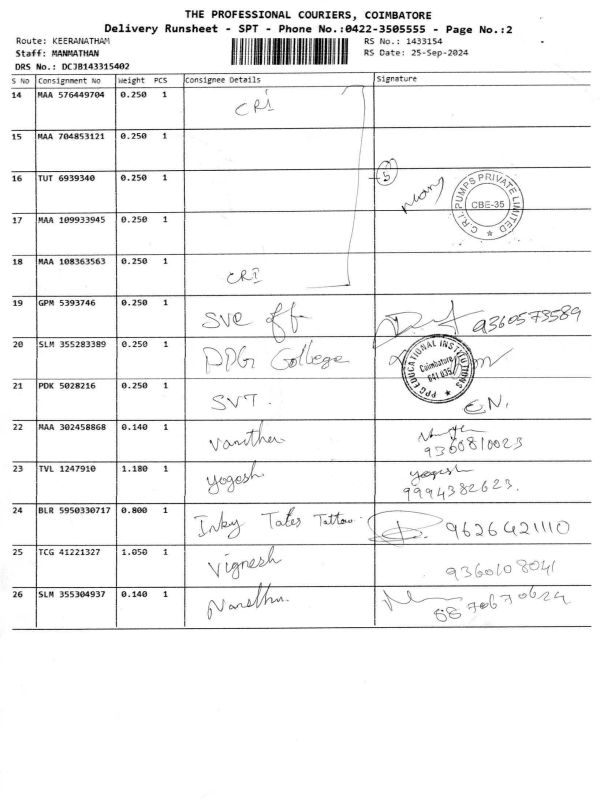 THE PROFESSIONAL COURIERS, COIMBATORE
Delivery Runsheet - SPT - Phone No.:0422-3505555 - Page No.:2
Route: KEERANATHAM RS No.: 1433154
Staff: MANMATHAN RS Date: 25-Sep-2024
DRS No.: DCJB143315402
S No Consignment No Weight PCS Consignee Details Signature
14 MAA 576449704 0.250 1 CRI
15 MAA 704853121 0.250 1
16 TUT 6939340 0.250 1 5
C.R.I. PUMPS PRIVATE LIMITED
CBE-35
17 MAA 109933945 0.250 1
18 MAA 108363563 0.250 1 CRI
19 GPM 5393746 0.250 1 SVC off 9360573589
20 SLM 355283389 0.250 1 PPG College
PPG EDUCATIONAL INSTITUTIONS
Coimbatore
641 035
21 PDK 5028216 0.250 1 SVT. E.N.
22 MAA 302458868 0.140 1 Vanitha 9360810023
23 TVL 1247910 1.180 1 yogesh yogesh
9994382623.
24 BLR 5950330717 0.800 1 Inky Tales Tattoo. 9626421110
25 TCG 41221327 1.050 1 Vignesh 9360108041
26 SLM 355304937 0.140 1 8870670624